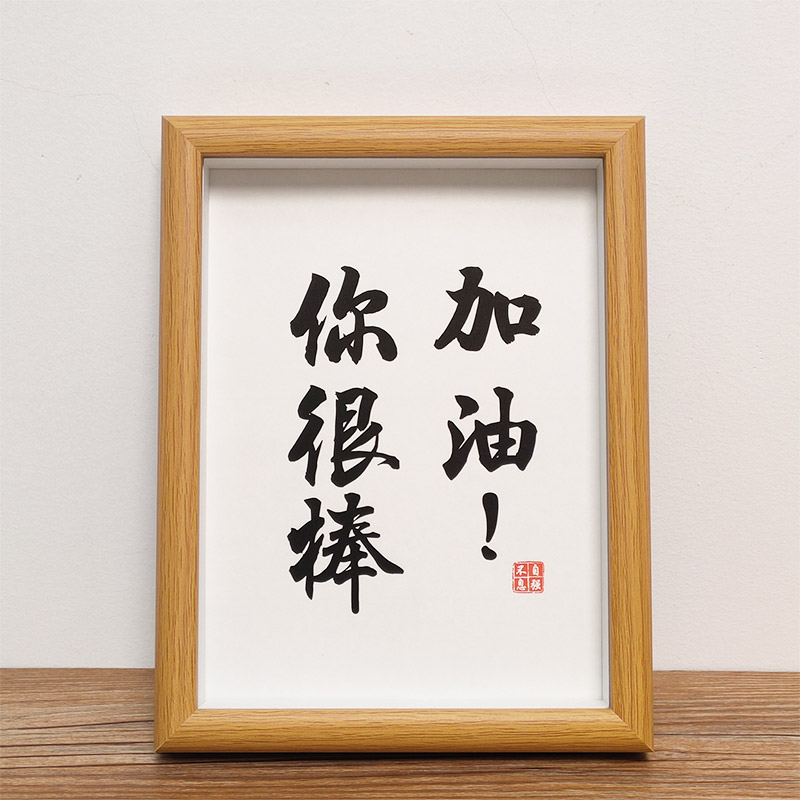 加油！
你很棒
自强不息